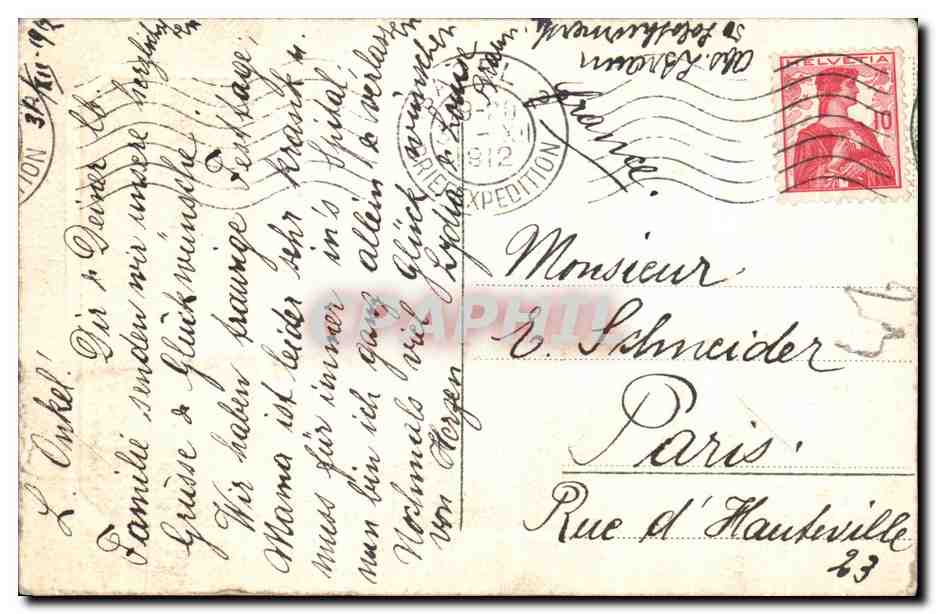 31/XII. 1912
L. Onkel!
Dir & Deiner lb.
Familie senden wir unsere herzlichsten
Grüsse & Glückwünsche.
Wir haben traurige Festtage,
Mama ist leider sehr krank u.
muss für immer in's Spital
nun bin ich ganz allein & verlassen
Nochmals viel Glück wünschen
von Herzen Lydia & Louise
Braun
Abs. L. Braun
France.
BASEL
1912
BRIEF EXPEDITION
HELVETIA
10
Monsieur
E. Schneider
Paris.
Rue d'Hauteville
23
CPAPHIL